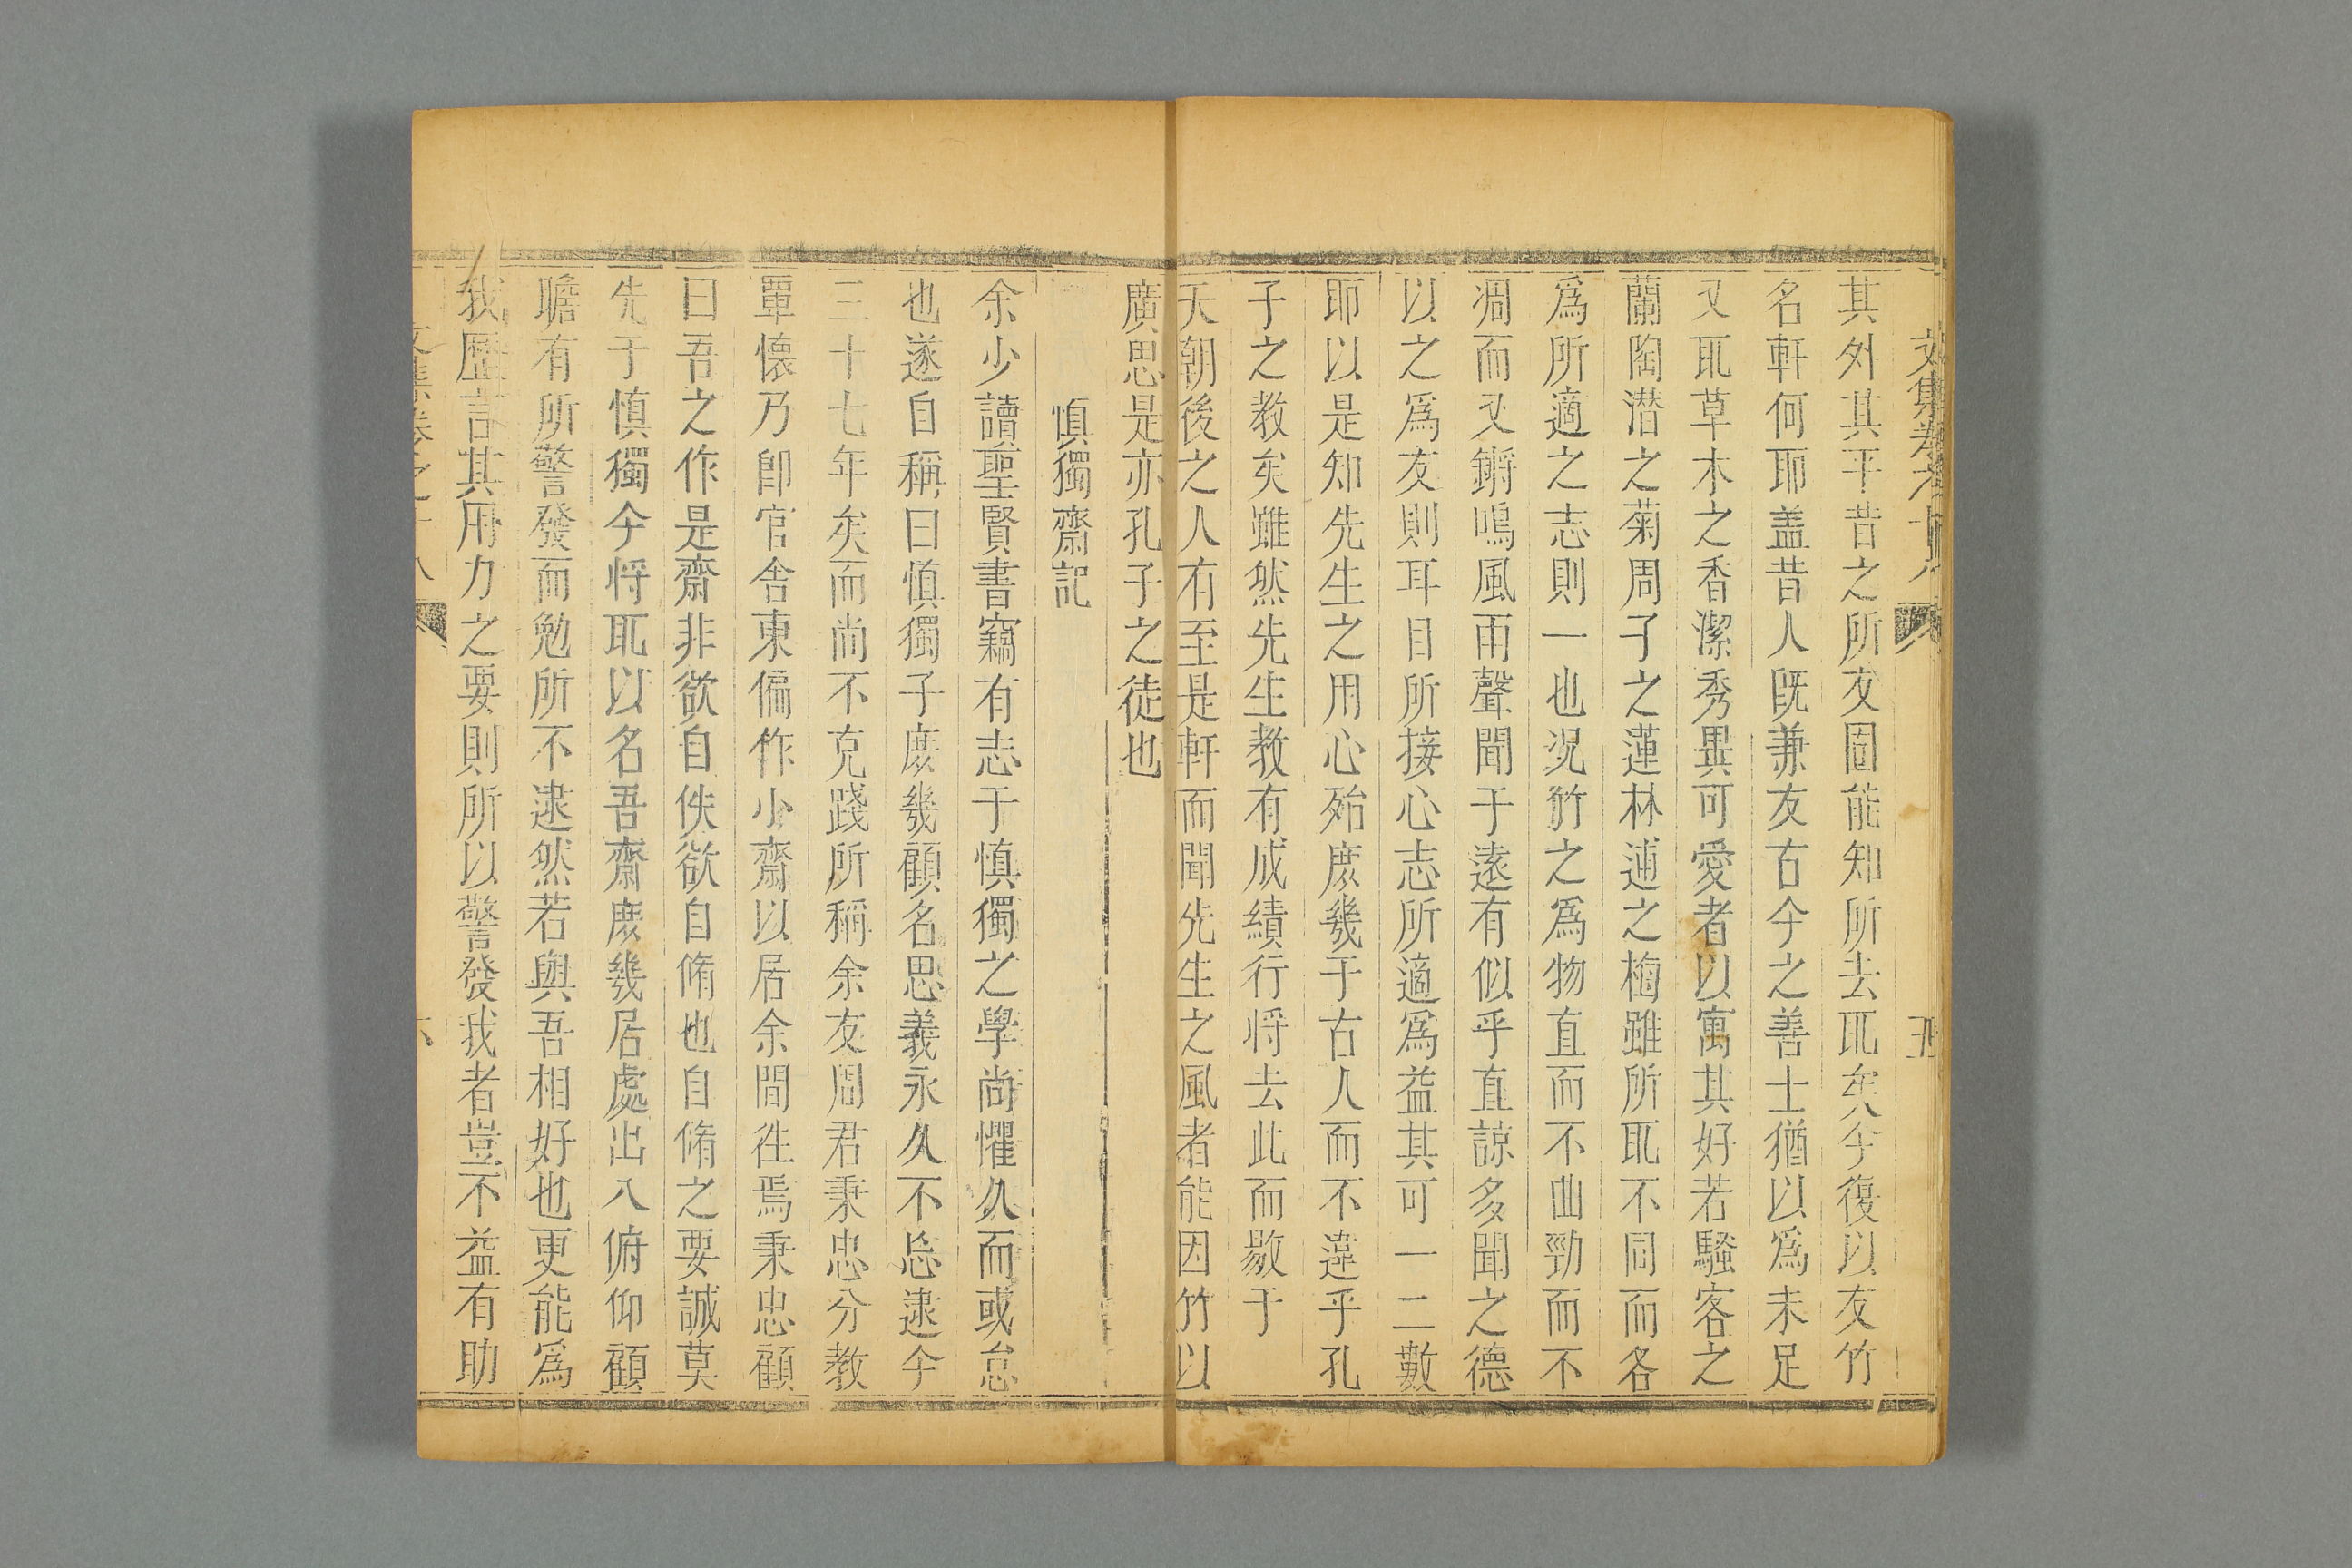 文集卷之十八
五
其外其平昔之所友固能知所去取矣今復以友竹
名軒何耶盖昔人既兼友古今之善士猶以爲未足
又取草木之香潔秀異可愛者以寓其好若騷客之
蘭陶潜之菊周子之蓮林逋之梅雖所取不同而各
爲所適之志則一也況竹之爲物直而不曲勁而不
凋而又鏘鳴風雨聲聞于遠有似乎直諒多聞之德
以之爲友則耳目所接心志所適爲益其可一二數
耶以是知先生之用心殆庶幾于古人而不違乎孔
子之教矣雖然先生教有成績行将去此而敭于
天朝後之人有至是軒而聞先生之風者能因竹以
廣思是亦孔子之徒也
慎獨齋記
余少讀聖賢書竊有志于慎獨之學尚懼久而或怠
也遂自稱曰慎獨子庶幾顧名思義永久不忘逮今
三十七年矣而尚不克踐所稱余友周君秉忠分教
覃懷乃卽官舍東偏作小齋以居余間徃焉秉忠顧
曰吾之作是齋非欲自佚欲自脩也自脩之要誠莫
先于慎獨今将取以名吾齋庶幾居處出入俯仰顧
瞻有所警發而勉所不逮然若與吾相好也更能爲
我歷言其用力之要則所以警發我者豈不益有助
文集卷之十八
六